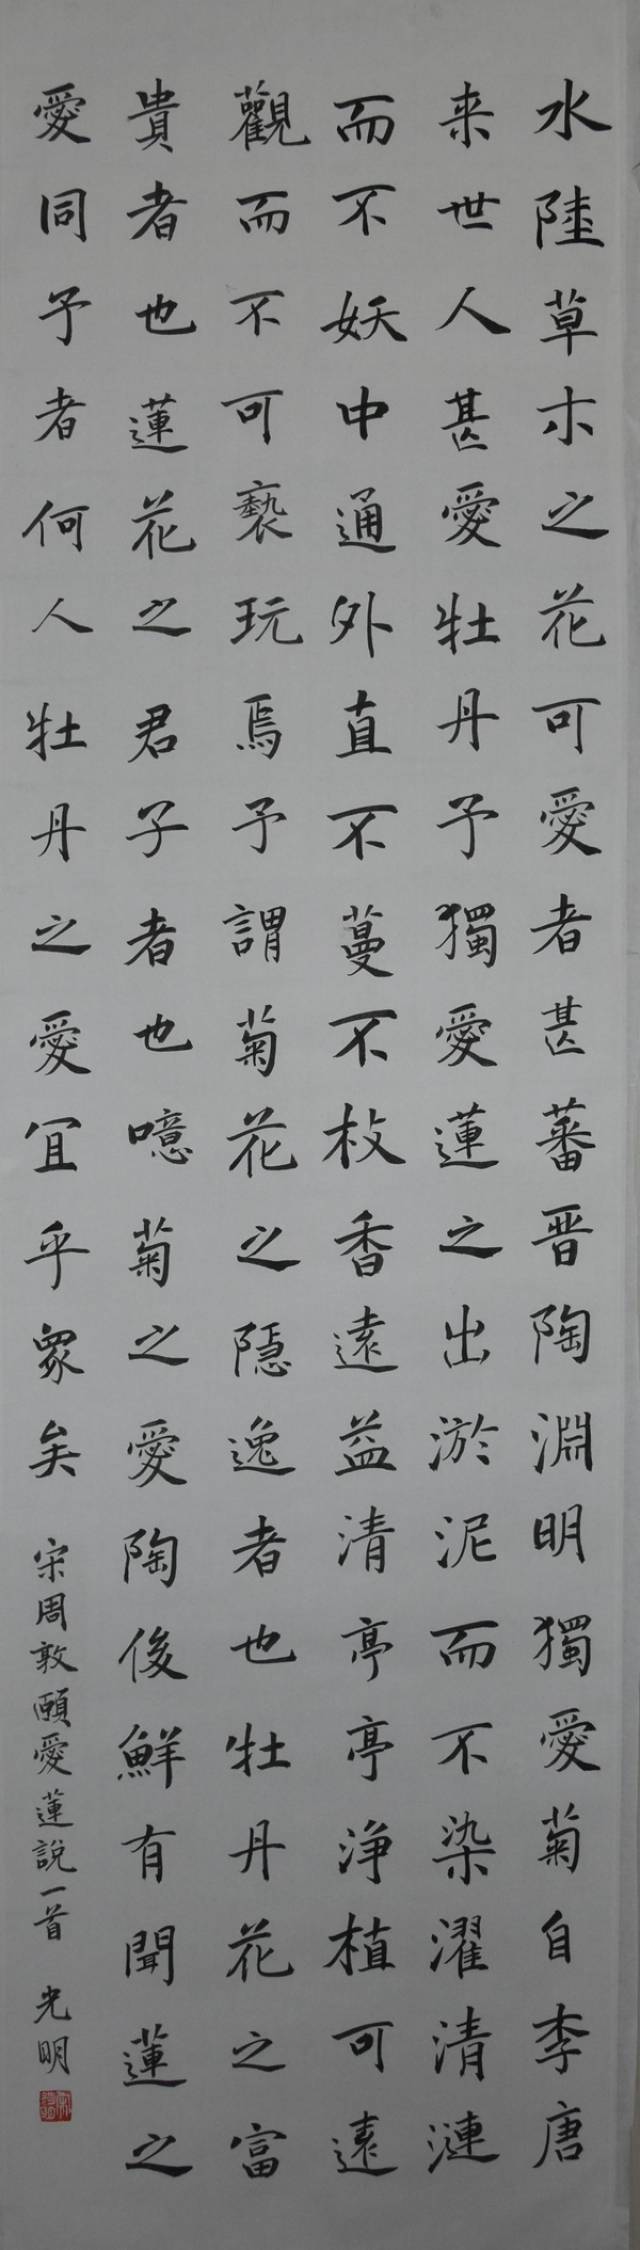 水陸草木之花可愛者甚蕃晋陶淵明獨愛菊自李唐
来世人甚愛牡丹予獨愛蓮之出淤泥而不染濯清漣
而不妖中通外直不蔓不枝香遠益清亭亭浄植可遠
觀而不可褻玩焉予謂菊花之隠逸者也牡丹花之富
貴者也蓮花之君子者也噫菊之愛陶後鮮有聞蓮之
愛同予者何人牡丹之愛宜乎衆矣
宋周敦頤愛蓮說一首 光明